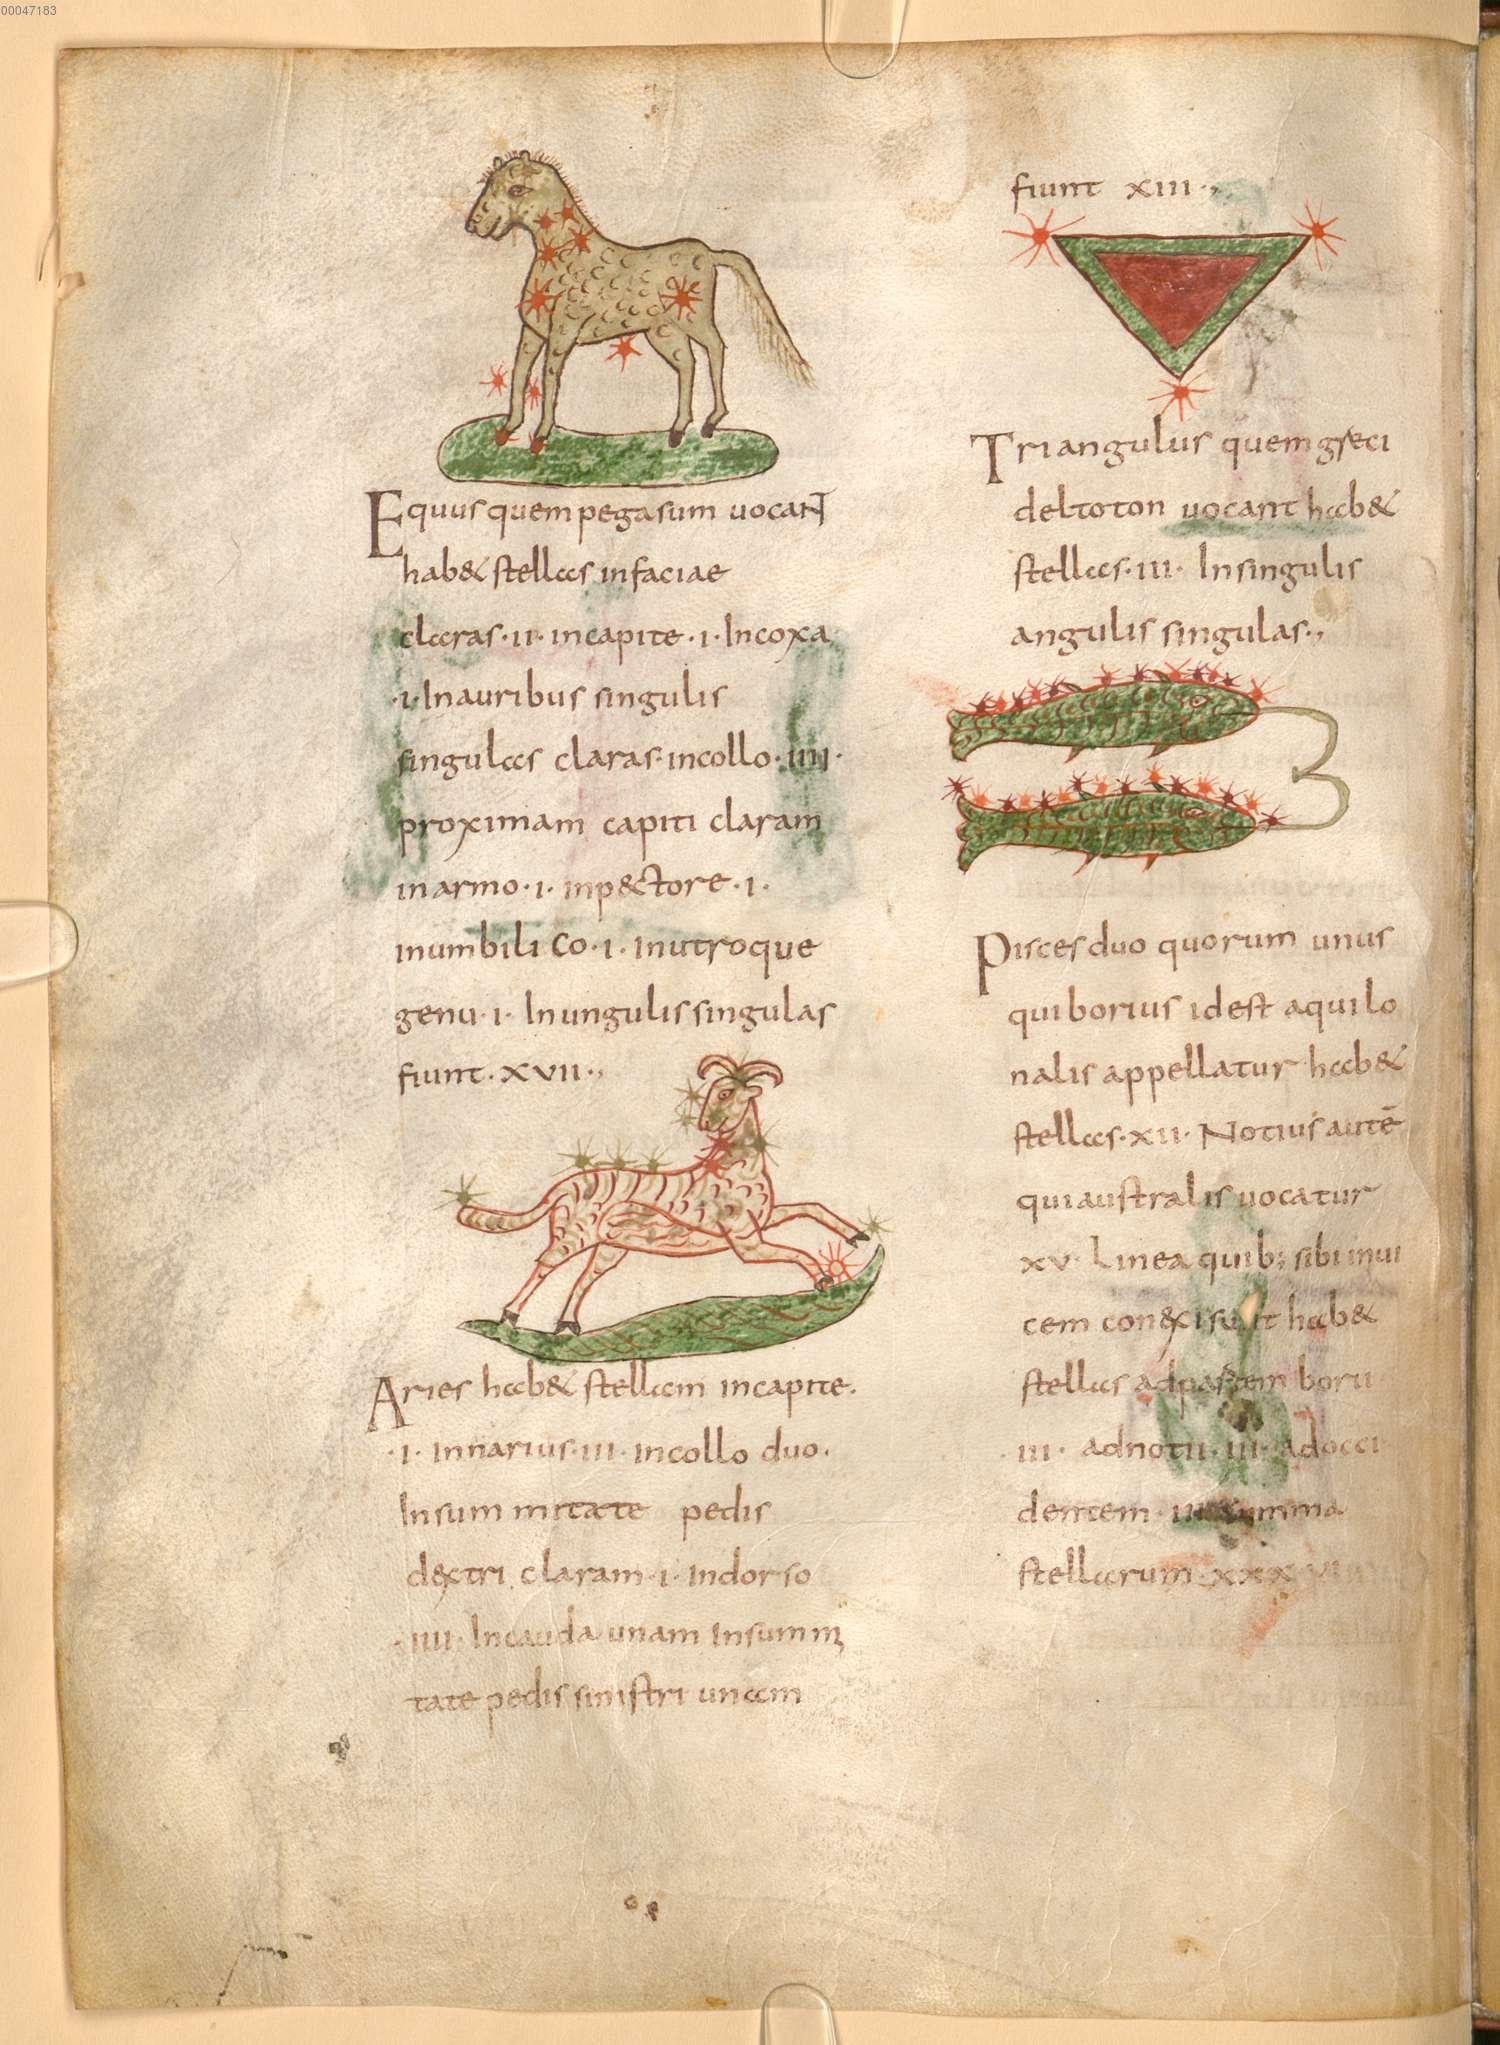 00047183
Equus quem pegasum uocaN
hab& stellas infaciae
claras·ii· incapite·i· Incoxa
·i· Inauribus singulis
singulas claras·incollo·iiii·
proximam capiti claram
inarmo·i· inp&ctore·i·
inumbili co·i· Inutroque
genu·i· Inungulis singulas
fiunt·xvii·,
Aries hab& stellam incapite·
·i· Innarius·iii· incollo duo·
Insum mitate pedis
dextri claram·i· Indorso
·iiii· Incauda unam Insumm
tate pedis sinistri unam
fiunt xiii·,
Triangulus quem greci
deltoton uocant hab&
stellas·iii· Insingulis
angulis singulas·,
Pisces duo quorum unus
qui borius idest aquilo
nalis appellatur hab&
stellas·xii· Notius autē
qui australis uocatur
xv· Linea quib; sibi inui
cem conexi sunt hab&
stellas adpartem borii
iii· adnotii·iii· adocci
dentem·iii· Summa
stellarum